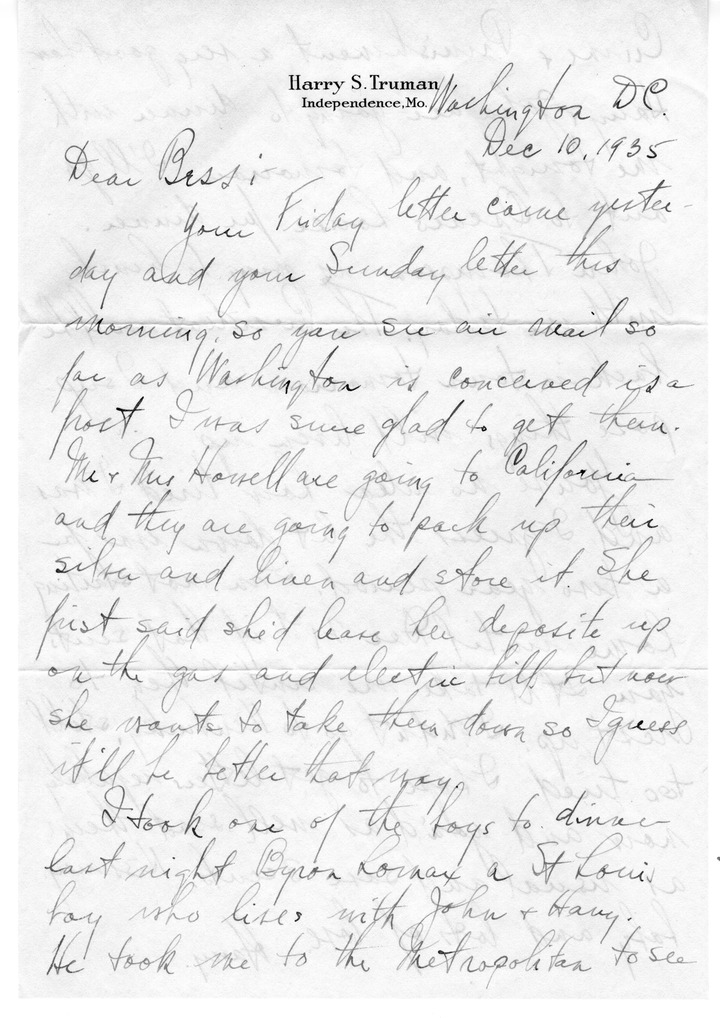 Harry S. Truman
Independence, Mo.
Washington DC.
Dec 10, 1935
Dear Bess:
Your Friday letter came yester-
day and your Sunday letter this
morning, so you see air mail so
far as Washington is concerned is a
frost. I was sure glad to get them.
Mr & Mrs Howell are going to California
and they are going to pack up their
silver and linen and store it. She
first said she'd leave her deposite up
on the gas and electric bill but now
she wants to take them down so I guess
it'll be better that way.
I took one of the boys to dinner
last night Byron Lomax a St Louis
boy who lives with John & Harry.
He took me to the Metropolitan to see